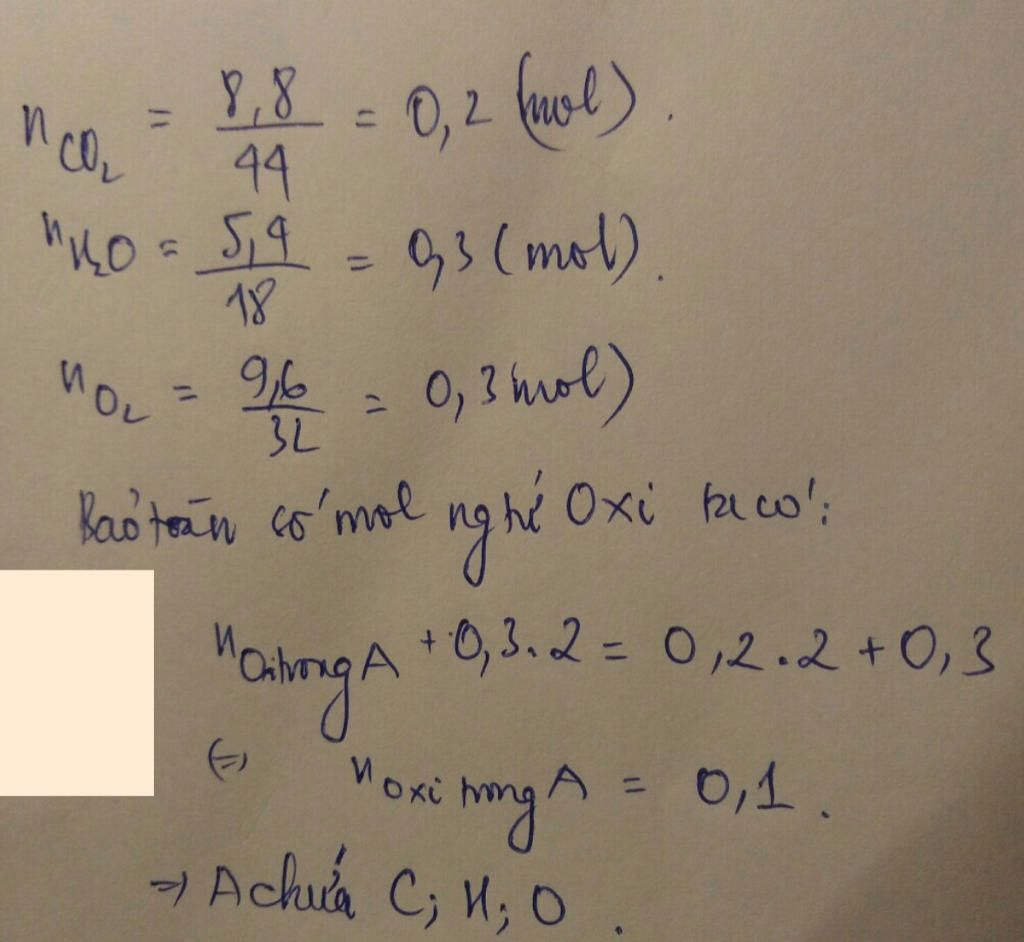 n CO₂ = 8,8/44 = 0,2 (mol).
n H₂O = 5,4/18 = 0,3 (mol).
n O₂ = 9,6/32 = 0,3 mol)
Bảo toàn số mol ng tử Oxi ta có:
n Oxi trong A + 0,3.2 = 0,2.2 + 0,3
(=) n oxi trong A = 0,1.
=> A chứa C; H; O.